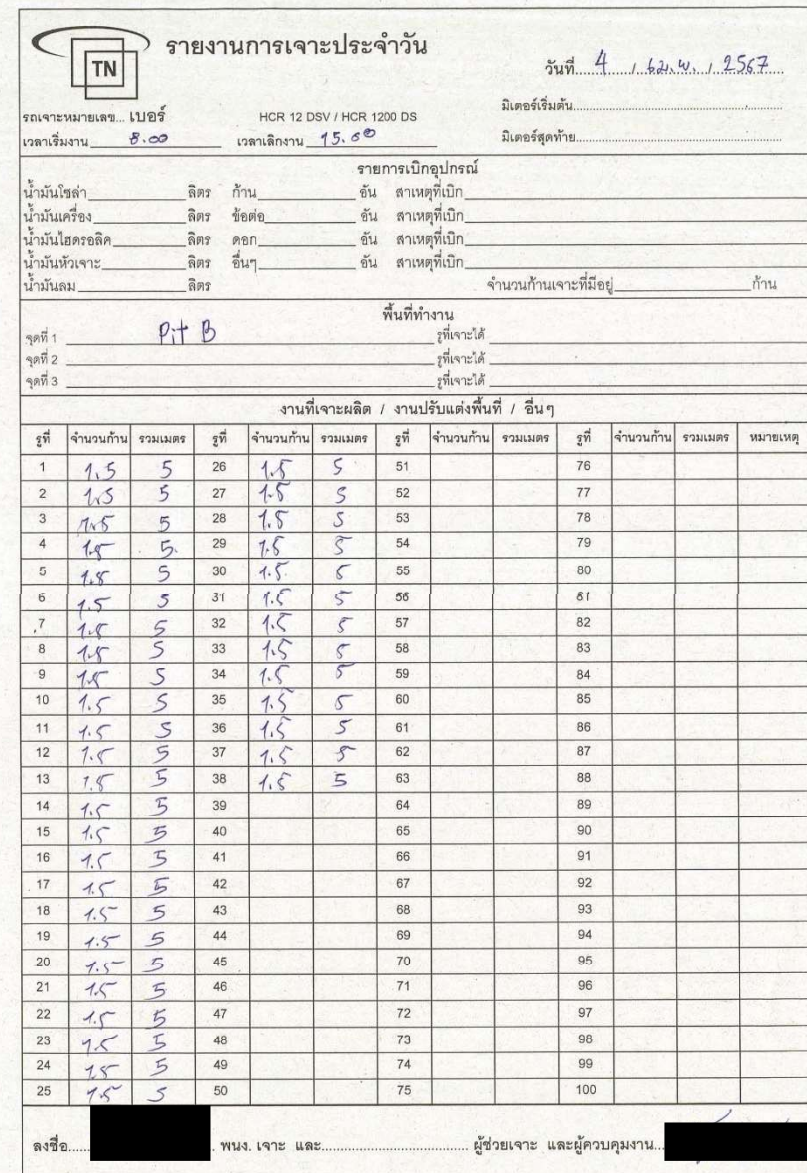 TN
รายงานการเจาะประจำวัน
วันที่ 4 / เม.พ. / 2567
รถเจาะหมายเลข... เบอร์ HCR 12 DSV / HCR 1200 DS มิเตอร์เริ่มต้น
เวลาเริ่มงาน 8.00 เวลาเลิกงาน 15.00 มิเตอร์สุดท้าย
รายการเบิกอุปกรณ์
น้ำมันโซล่า ลิตร ก้าน อัน สาเหตุที่เบิก
น้ำมันเครื่อง ลิตร ข้อต่อ อัน สาเหตุที่เบิก
น้ำมันไฮดรอลิค ลิตร ดอก อัน สาเหตุที่เบิก
น้ำมันหัวเจาะ ลิตร อื่นๆ อัน สาเหตุที่เบิก
น้ำมันลม ลิตร จำนวนก้านเจาะที่มีอยู่ ก้าน
พื้นที่ทำงาน
จุดที่ 1 Pit B รูที่เจาะได้
จุดที่ 2 รูที่เจาะได้
จุดที่ 3 รูที่เจาะได้
งานที่เจาะผลิต / งานปรับแต่งพื้นที่ / อื่นๆ
รูที่ จำนวนก้าน รวมเมตร รูที่ จำนวนก้าน รวมเมตร รูที่ จำนวนก้าน รวมเมตร รูที่ จำนวนก้าน รวมเมตร หมายเหตุ
1 1.5 5 26 1.5 5 51 76
2 1.5 5 27 1.5 5 52 77
3 1.5 5 28 1.5 5 53 78
4 1.5 5 29 1.5 5 54 79
5 1.5 5 30 1.5 5 55 80
6 1.5 5 31 1.5 5 56 81
7 1.5 5 32 1.5 5 57 82
8 1.5 5 33 1.5 5 58 83
9 1.5 5 34 1.5 5 59 84
10 1.5 5 35 1.5 5 60 85
11 1.5 5 36 1.5 5 61 86
12 1.5 5 37 1.5 5 62 87
13 1.5 5 38 1.5 5 63 88
14 1.5 5 39 64 89
15 1.5 5 40 65 90
16 1.5 5 41 66 91
17 1.5 5 42 67 92
18 1.5 5 43 68 93
19 1.5 5 44 69 94
20 1.5 5 45 70 95
21 1.5 5 46 71 96
22 1.5 5 47 72 97
23 1.5 5 48 73 98
24 1.5 5 49 74 99
25 1.5 5 50 75 100
ลงชื่อ พนง. เจาะ และ ผู้ช่วยเจาะ และผู้ควบคุมงาน